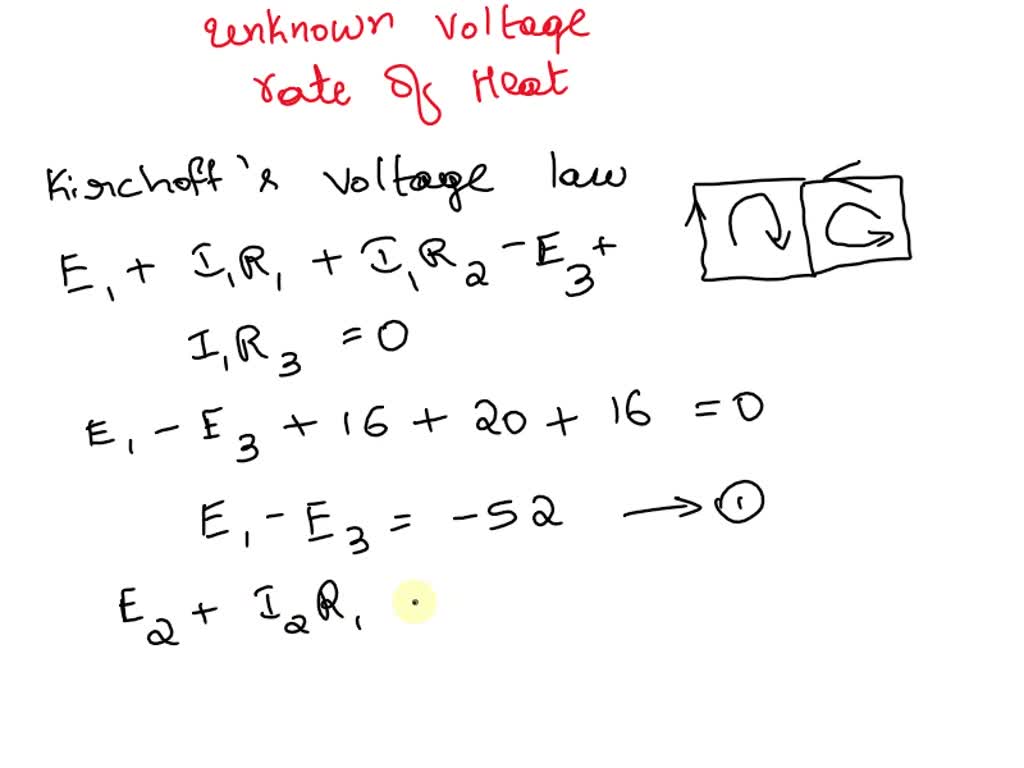 Unknown Voltage
rate of Heat
Kirchoff's voltage law
E₁ + I₁R₁ + I₁R₂ - E₃ +
I₁R₃ = 0
E₁ - E₃ + 16 + 20 + 16 = 0
E₁ - E₃ = -52 → ①
E₂ + I₂R₁